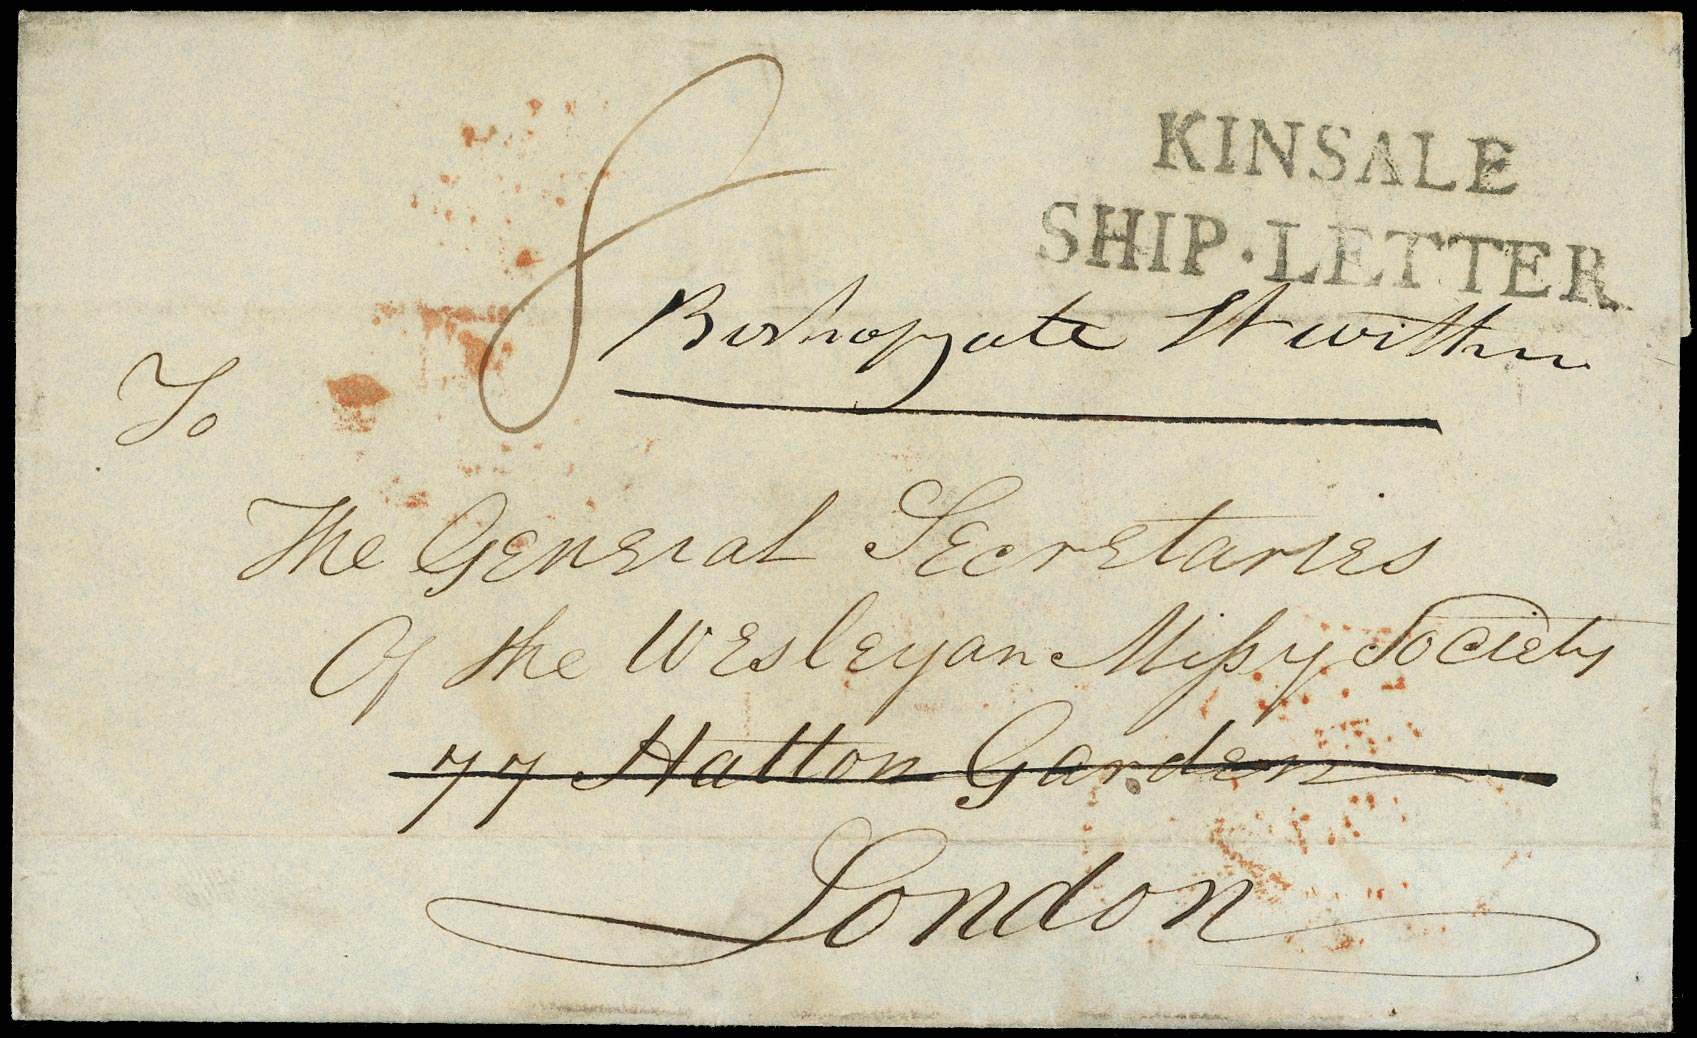 KINSALE
SHIP·LETTER
8
Bishopgate St within
To
The General Secretaries
Of the Wesleyan Missy Society
77 Hatton Garden
London